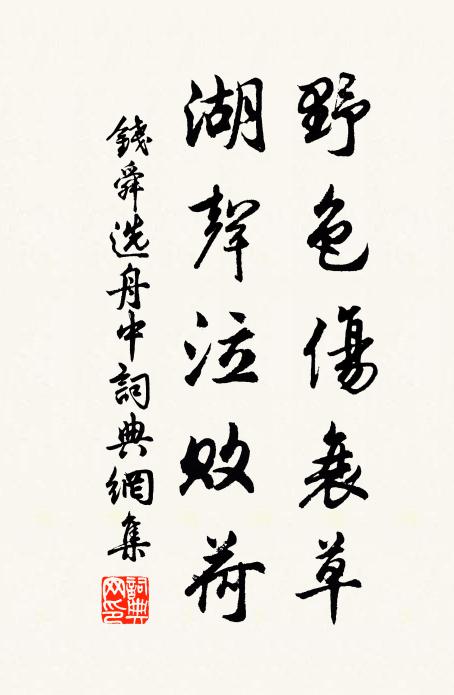 野色傷衰草
湖聲泣败荷
錢舜选舟中詞典網集
詞典网印